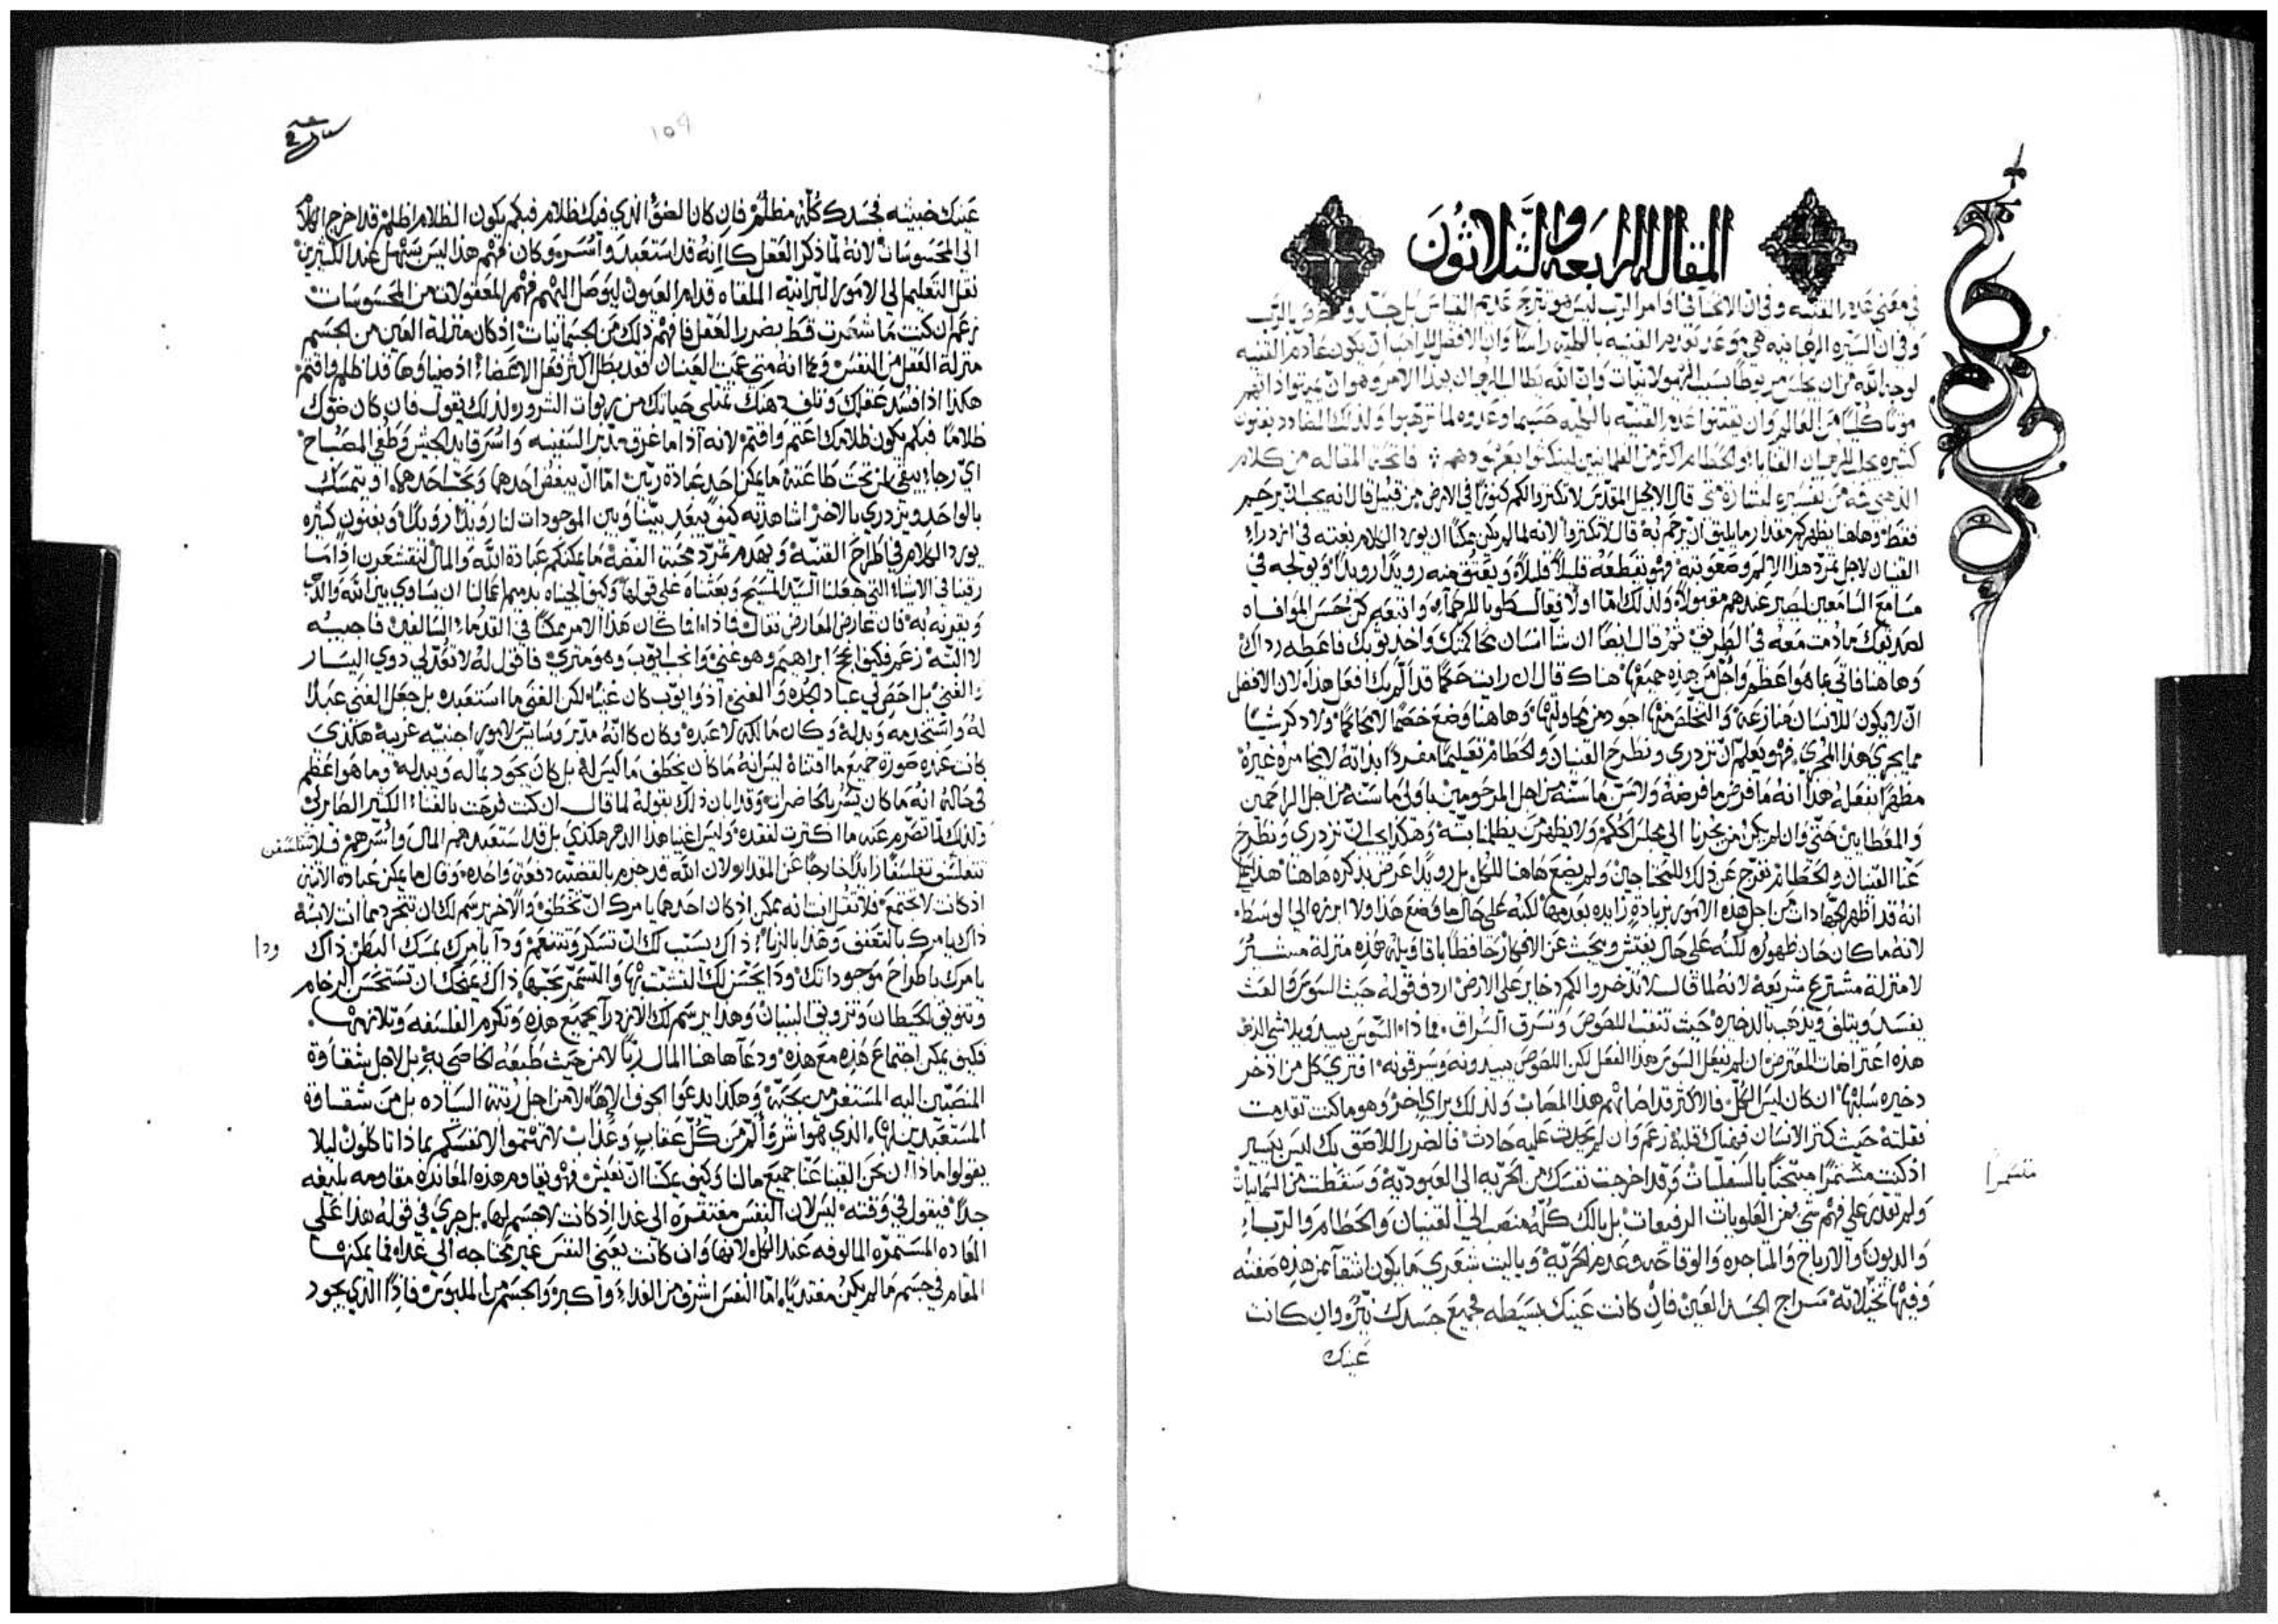 المقاله الرابعه والثلاثون
في معنى عدم القنيه وفي ان الانحآ في اوامر الرب ليس هو تبرج عديم القياس بل حد و الرب
وفي ان السيره الرهبانيه هي موعد تقدم القنيه بالكليه راسًا وان الافضل للراهب ان يكون عادم القنيه
لوجه الله من ان يجلس مربوطًا بسبب الهيولانيات وان الله يطالب الرهبان بهذا الامر وهو ان يموتوا ذاتهم
موتًا كليًا من العالم وان يقتنوا عدم القنيه بالكليه حسبما وعدوه لما ترهبوا ولذلك المضادد يفنون
كثيره يجلب للرهبان القنايا والحطام اكثر من العلمانيين لينكثوا بعهودهم ፥ فاتحة المقاله من كلام
الذهبي فمه من تفسيره لبشارة متى قال الانجيل المقدس لا تكنزوا لكم كنوزًا في الارض من قبل قال انه يجب ان نرحم
فقط وهاهنا يظهر كم مقدار ما يليق ان نرحم به قال لا تكنزوا لانه لما لم يكن ممكنًا ان يورد الكلام بغته في ازدراء
القنيان لاجل تمرد هذا الالم وصعوبته فهو يقطعه قليلاً قليلاً ويعتق منه رويدًا رويدًا ويولجه في
مسامع السامعين ليصير عندهم مقبولاً ولذلك اما اولا فقال طوبا للرحمآء واتبعه كن حسن الموافاه
لضدك مادمت معه في الطريق ثم قال ايضًا ان شآ انسان يحاكمك وياخذ ثوبك فاعطه رداك
وهاهنا فاتى بما هو اعظم واجل من هذه جميعها هناك قال ان رايت حكمًا قد الم بك افعل هذا لان الافضل
ان لا يكون للانسان منازعه والتخلص منها اجود من يحاولها وهاهنا وضع خصمًا لا محاكمًا ولا ذكر شيا
مما يجري هذا المجري فهو يعلم ان نزدري ونطرح القنيان والحطام تعليمًا مفردًا بذاته لا يخامره غيره
مظهرًا بفعله هذا انه ما فرض ما فرضه ولا سن ما سنه من اجل المرحومين باولى ما سنه من اجل الراحمين
والمعطايين حتى وان لم يكن من يجرنا الى مجلس الحكم ولا يظهر من يظلمنا بته وهكذا يجب ان نزدري ونطرح
عنا القنيان والحطام نفرج عن ذلك للمحتاجين ولم يضع هاهنا للكل بل رويدًا عرض بذكره هاهنا هذا على
انه قد اظهر الجهادات من اجل هذه الامور بزياده زايده بعدمها لكنه على حال ما وضع هذا ولا ابرزه الي الوسط
لانه ما كان حان ظهوره لكنه على حال يفتش ويبحث عن الافكار حافظًا باقاويله هذه منزلة مستشير
لا منزلة مشترع شريعه لانه لما قال لا تذخروا لكم دخاير على الارض اردف قوله حيث السوس والعث
يفسد ويتلف ويذهب بالدخيره حيث تنقب اللصوص وتسرق السراق فما ذا السوس يبيد ويلاشي الذهب
هذه اعتراضات المعترض ان لم يفعل السوس هذا الفعل لكن اللصوص يبيدونه ويسرقونه افتري كل من ادخر
دخيره سلبها ان كان ليس الكل فالاكثر قد اصابهم هذا المصاب ولذلك براي اخر وهو ما كنت تقدمت
فقلته حيث كنز الانسان فهناك قلبه زعم وان لم يحدث عليه حادث فالضرر اللاصق بك ليس يسير
اذ كنت مسمرًا متنحيًا بالسفليات وقد اخرجت نفسك من الحريه الى العبوديه وسقطت من السماييات
ولم تقدر على فهم شي من العلويات الرفيعات بل بالك كله منصب الي القنيان والحطام والربآء
والديون والارباح والمتاجره والوقاحه وعدم الحريه ويا ليت شعري ما يكون اشقآ من هذه صفته
وفيها تخيلاته سراج الجسد العين فان كانت عينك بسيطه فجميع جسدك نيّر وان كانت
عينك
متسمرا
104
عينك خبيثه فجسدك كله مظلم فان كان الضوّ الذي فيك ظلام فبكم يكون الظلام اظلم قد اخرج الكلام
الي المحسوسات لانه لما ذكر العقل كانه قد استعبد وآسره وكان فهم هذا ليس يسهل عند الكثيرين
نقل التعليم الى الامور البرانيه الملقاه قدام العيون ليوصل اليهم فهم المعقولات من المحسوسات
زعم ان كنت ما شعرت قط بضرر العقل فافهم ذلك من الجسمانيات اذ كان منزلة العين من الجسم
منزلة العقل من النفس وكما انه متى عميت العينان فقد بطل اكثر فعل الاعضاء اذ ضياوها قد اظلم واقتم
هكذا اذا فسد عقلك وتلف ذهنك تمتلي حياتك من ربوات الشرور ولذلك يقول فان كان ضوّك
ظلامًا فبكم يكون ظلامك اعتم واقتم لانه اذا ما غرق مدبر السفينه واسر قايد الجيش وطفي المصباح
اي رجاء يبقى لمن تحت طاعته ما يمكن احد عبادة ربين اما ان يبغض احدهما ويحب احدهما او يتمسك
بالواحد ويزدري بالاخر اشاهد به كيف يبعد بيننا وبين الموجودات لنا رويدًا رويدًا وبفنون كثيره
يورد الكلام في اطراح القنيه ويهدم تمرد محبة الفضه ما يمكنكم عبادة الله والمال لنقشعرن اذًا ما
رقنا في الاشياء التي جعلنا السيد المسيح وبعثناه على قولها وكيف الجيناه بدميم اعمالنا ان يساوي بين الله والذهب
ويقرنه به فان عارض المعارض فقال فما ذا اما كان هذا الامر ممكنًا في القدماء السالفين فاجيبه
لا البته زعم فكيف نجح ابراهيم وهو غني وانجب ايوب وهو متري فاقول له لا تعد لي ذوي اليسار
والغني بل احص لي عباد الجده والغني اذ ايوب كان غنيًا لكن الغني ما استعبده بل جعل الغني عبدًا
له واستخدمه وبدله وكان مالكه لا عبده وكان كانه مدبر وسايس لامور اجنبيه غريبه هكذي
كانت عنده صورة جميع ما اقتناه ليس انه ما كان يخطف ما ليس له بل كان يجود بماله ويبدله وما هو اعظم
في حاله انه ما كان يسر بالحاضرات وقد ابان ذلك بقوله لما قال ان كنت فرحت بالغناء الكثير الصاير لي
ولذلك لما تصرم عنه ما اكترت لفقده وليس اغنيا هذا الدهر هكذي بل قد استعبدهم المال واسرهم فلا
تتفلسف تفلسفًا زايدًا خارجًا عن المقدار لان الله قد جزم بالقضيه دفعة واحده وقال ما يمكن عبادة الاثنين
اذ كانت لا تجتمع فلا تقل انت انه يمكن اذ كان احدهما يامرك ان تخطف والاخر يرسم لك ان تتجرد مما انت لابسه
ذاك يامرك بالتعفف وهذا بالزناء ذاك يسبب لك ان تسكر وتتنعم ودآ يامرك بمسك البطن ذاك
يامرك باطراح موجوداتك ودا يحسن لك التشبث بها والتسمّر بحبها ذاك يمنحك ان تستحسن الرخام
وتنويق الحيطان وتزويق البنيان وهذا يرسم لك الازدرآ بجميع هذه وتكرم الفلسفه وتلازمها
فكيف يمكن اجتماع هذه مع هذه ودعآ هاهنا المال ربًا لا من حيث طبعه الخاصي به بل لاجل شقاوة
المنصبين اليه المستغرمين بمحبته وهكذا يدعو الجوف الاهًا لا من اجل رتبة السياده بل من شقاوة
المستعبدين لها الذي هو اشر وآلم من كل عقاب وعذاب لا تهتموا لانفسكم بماذا تاكلون ليلا
يقولوا ماذا ان نحن القينا عنا جميع مالنا وكيف يمكننا ان نعيش فهو يقاوم هذه المعانده مقاومه بليغه
جدًا فيقول في وقته ليس لان النفس مفتقره الي غدا اذ كانت لا جسم لها بل جري في قوله هذا على
العاده المستمره المالوفه عند الكل لانها وان كانت يعني النفس غير محتاجه الى غداء فما يمكنها
المقام في جسم ما لم يكن مغتديًا اما النفس اشرف من الغداء واكبر والجسم من الملبوس فاذًا الذي يجود
ودا
تتفلسفن